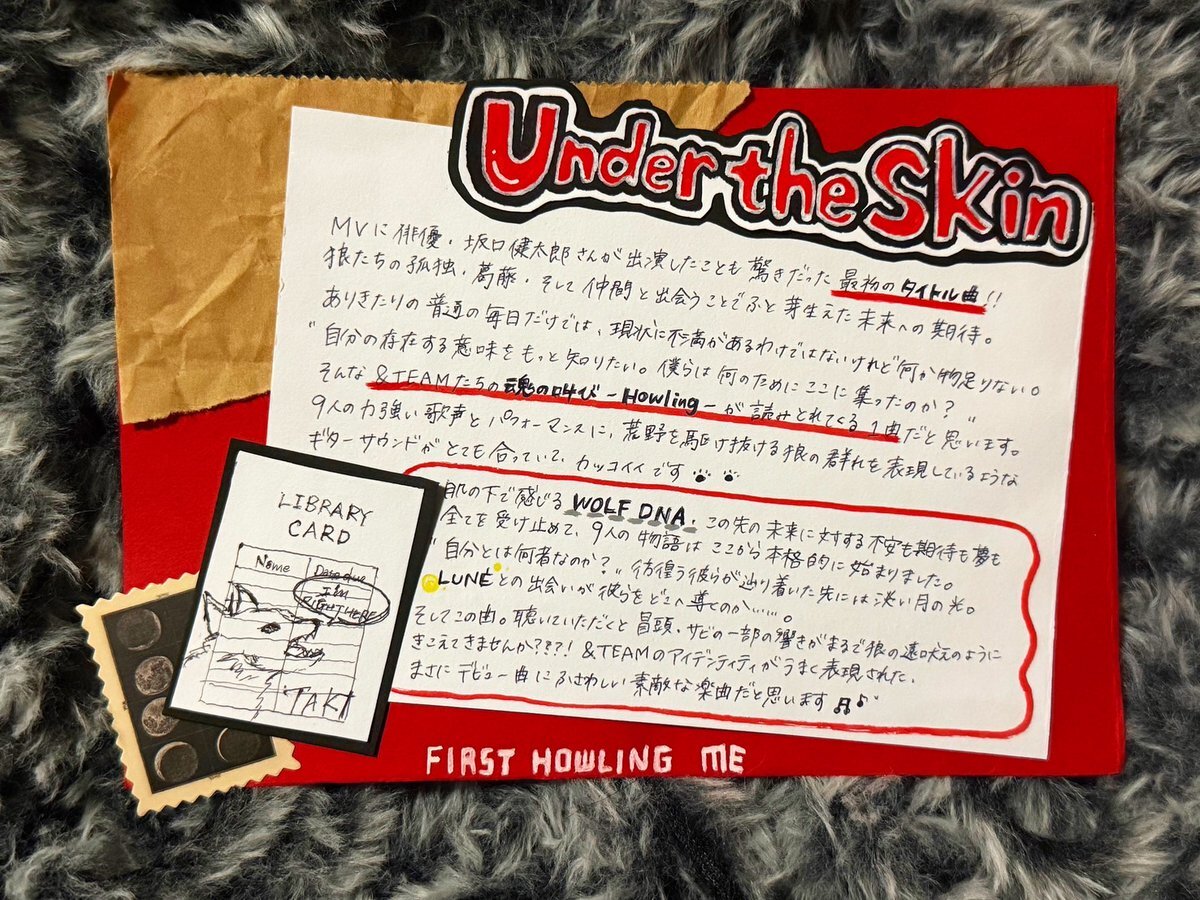 Under the Skin
MVに俳優・坂口健太郎さんが出演したことも驚きだった最初のタイトル曲!!
狼たちの孤独、葛藤、そして仲間と出会うことでふと芽生えた未来への期待。
ありきたりの普通の毎日だけでは、現状に不満があるわけではないけれど何か物足りない。
"自分の存在する意味をもっと知りたい。僕らは何のためにここに集ったのか?"
そんな&TEAMたちの魂の叫び-Howling-が読みとれてくる1曲だと思います。
9人の力強い歌声とパフォーマンスに、荒野を駆け抜ける狼の群れを表現しているような
ギターサウンドがとても合っていて、カッコイイです
肌の下で感じるWOLF DNA、この先の未来に対する不安も期待も夢も
全てを受け止めて、9人の物語はここから本格的に始まりました。
"自分とは何者なのか?"彷徨う彼らが辿り着いた先には淡い月の光。
LUNÉとの出会いが彼らをどこへ導くのか……。
そしてこの曲。聴いていただくと冒頭、サビの一部の響きがまるで狼の遠吠えのように
きこえてきませんか???! &TEAMのアイデンティティがうまく表現された、
まさにデビュー曲にふさわしい素敵な楽曲だと思います
LIBRARY
CARD
Name Date due
I'M
RIGHT HERE
TAKI
FIRST HOWLING ME